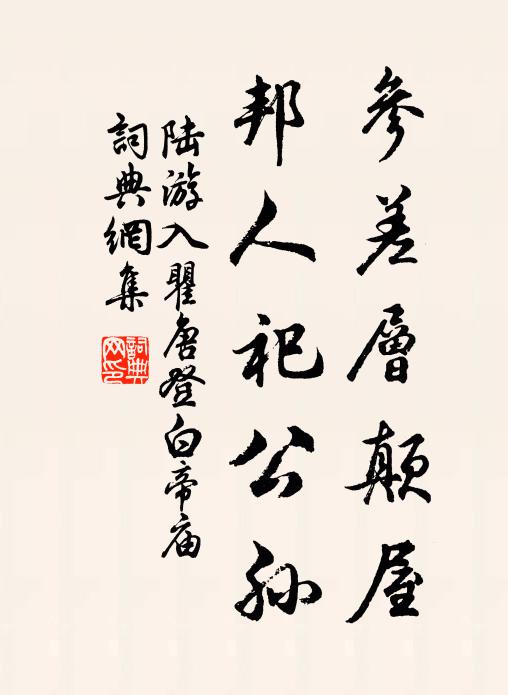 參差層顛屋
邦人祀公孙
陆游入瞿唐登白帝庙
詞典網集
詞典网印